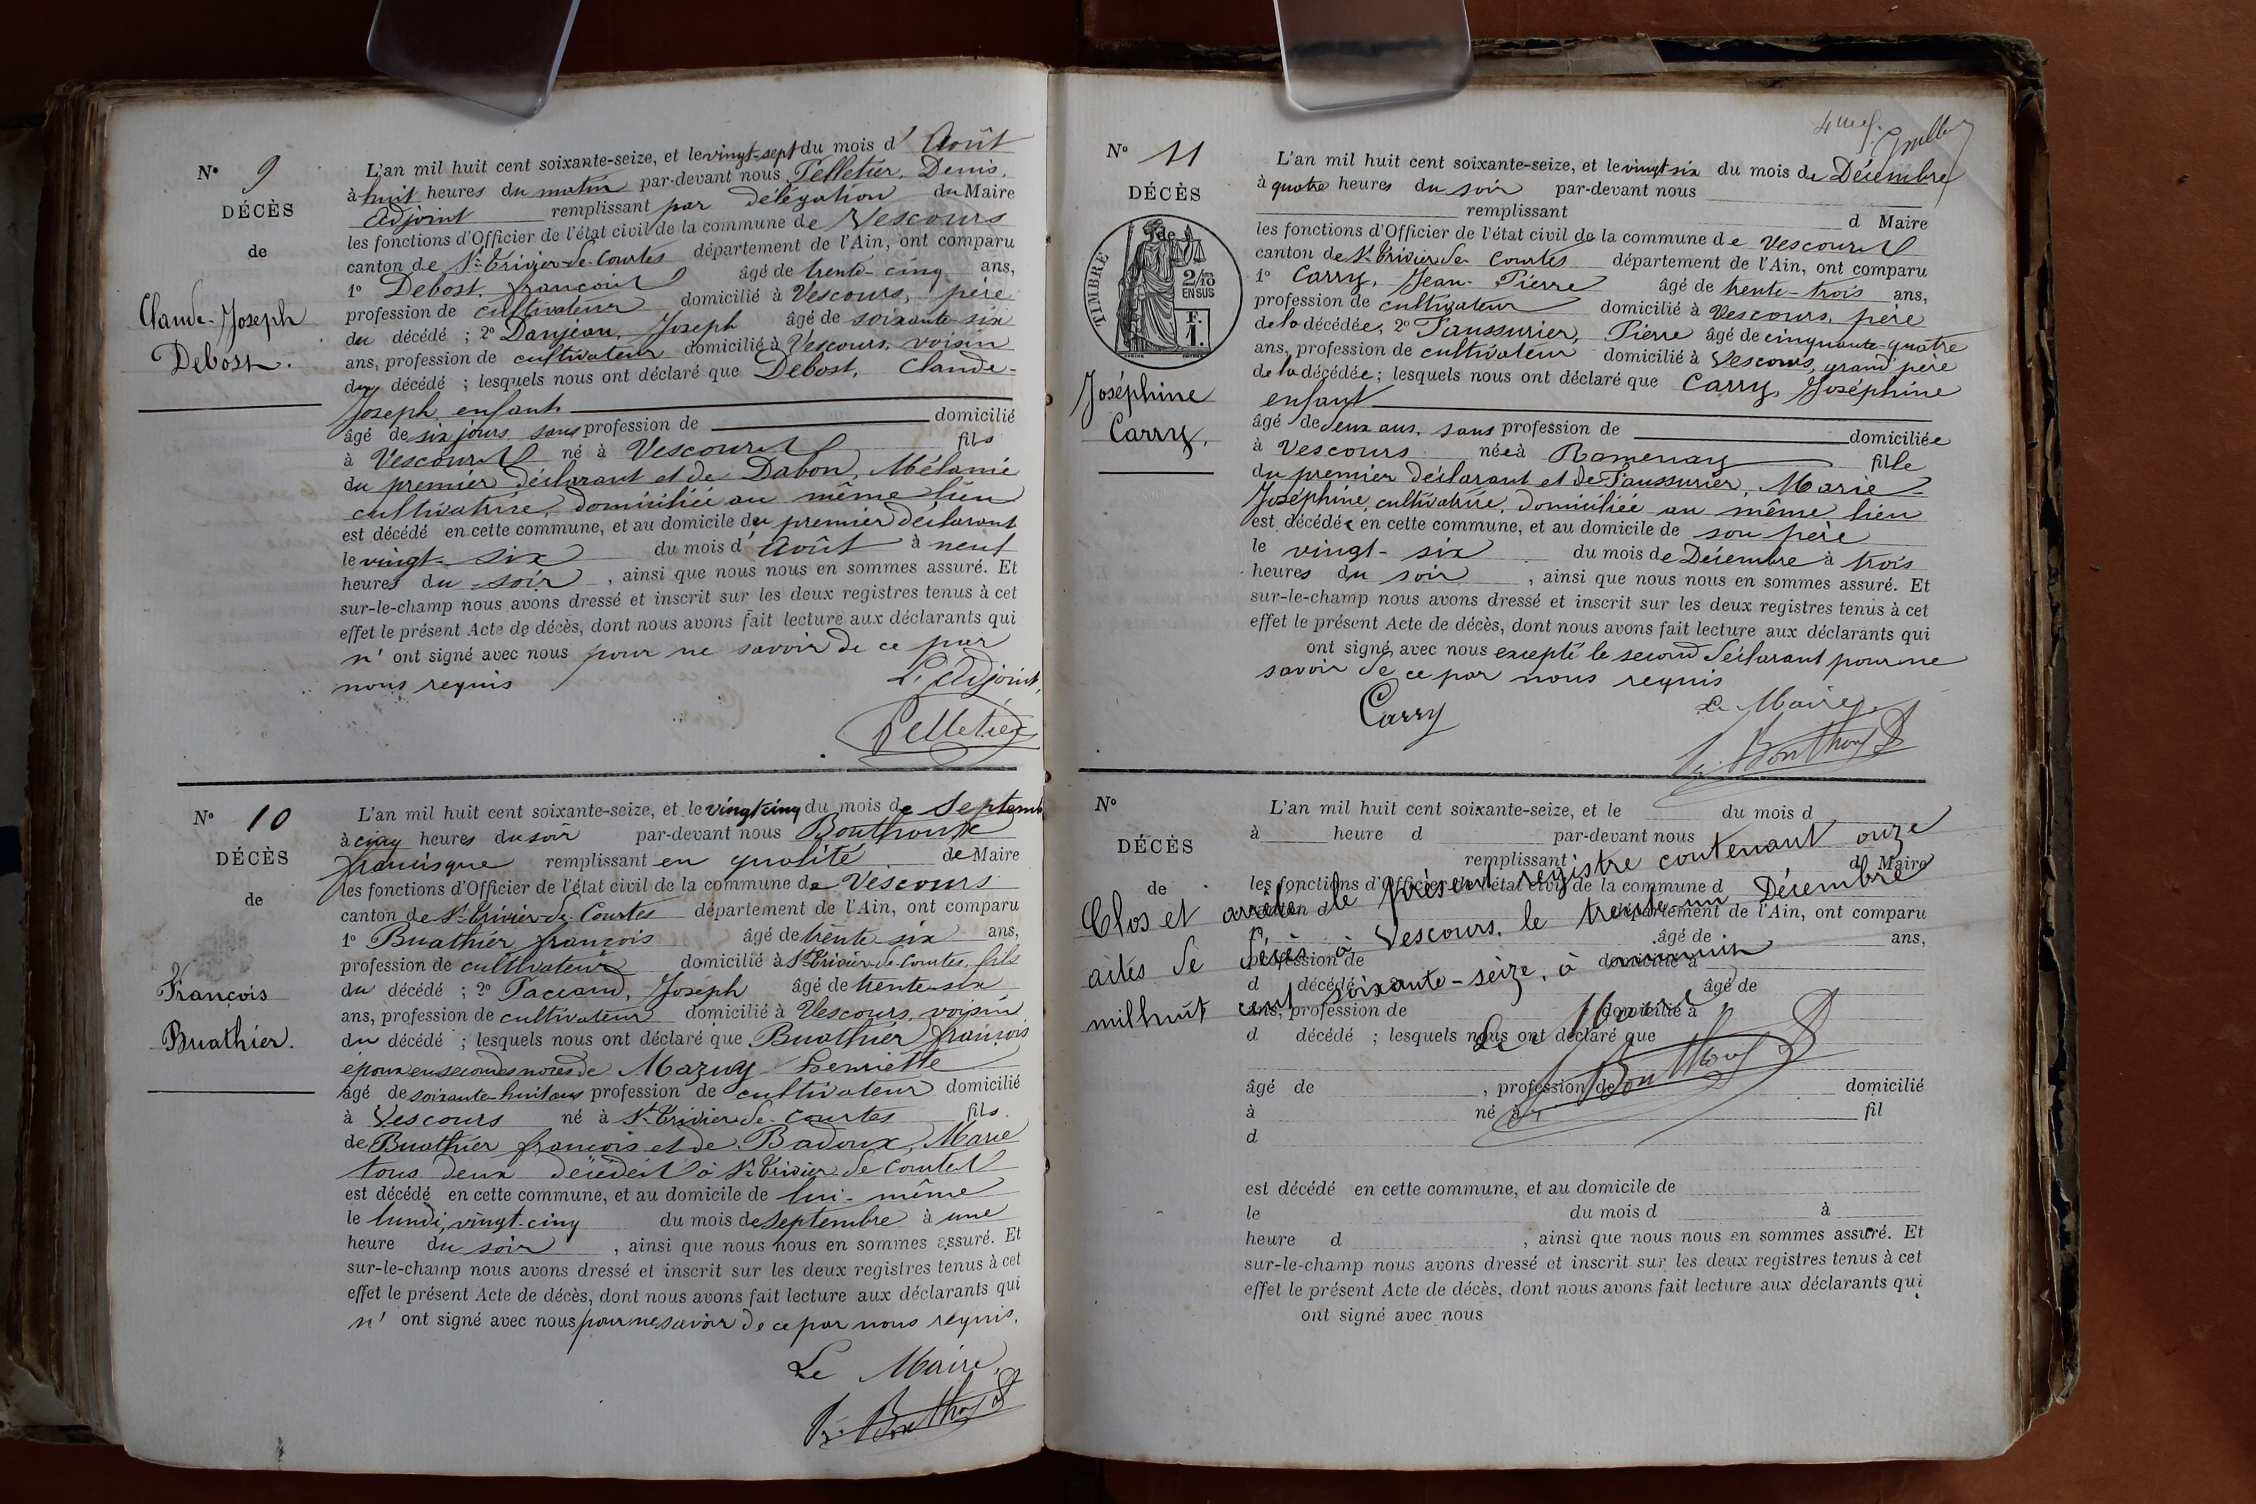 N° 9
DÉCÈS
de
Claude-Joseph
Debost.
L'an mil huit cent soixante-seize, et le vingt-sept du mois d' Août
à huit heures du matin par-devant nous Pelletier, Denis,
Adjoint remplissant par délégation du Maire
les fonctions d'Officier de l'état civil de la commune de Vescours
canton de St Trivier-de-Courtes département de l'Ain, ont comparu
1° Debost, françois âgé de trente-cinq ans,
profession de cultivateur domicilié à Vescours, père
du décédé ; 2° Danjean, Joseph âgé de soixante-six
ans, profession de cultivateur domicilié à Vescours, voisin
du décédé ; lesquels nous ont déclaré que Debost, Claude-
Joseph enfant
âgé de six jours sans profession de domicilié
à Vescours né à Vescours fils
du premier déclarant et de Dabon, Mélanie
cultivatrice, domiciliée au même lieu
est décédé en cette commune, et au domicile du premier déclarant
le vingt-six du mois d' Août à neuf
heures du soir , ainsi que nous nous en sommes assuré. Et
sur-le-champ nous avons dressé et inscrit sur les deux registres tenus à cet
effet le présent Acte de décès, dont nous avons fait lecture aux déclarants qui
n' ont signé avec nous pour ne savoir de ce par
nous requis
L'Adjoint,
Pelletier
N° 10
DÉCÈS
de
François
Buathier.
L'an mil huit cent soixante-seize, et le vingt cinq du mois de Septemb
à cinq heures du soir par-devant nous Bouthoux
francisque remplissant en qualité de Maire
les fonctions d'Officier de l'état civil de la commune de Vescours
canton de St Trivier-de-Courtes département de l'Ain, ont comparu
1° Buathier françois âgé de trente-six ans,
profession de cultivateur domicilié à St Trivier-de-Courtes, fils
du décédé ; 2° Paccaud, Joseph âgé de trente-six
ans, profession de cultivateur domicilié à Vescours, voisin
du décédé ; lesquels nous ont déclaré que Buathier françois
époux en secondes noces de Mazuy Henriette
âgé de soixante-huit ans profession de cultivateur domicilié
à Vescours né à St Trivier-de-Courtes fils
de Buathier françois et de Badoux, Marie
tous deux décédés à St Trivier-de-Courtes
est décédé en cette commune, et au domicile de lui-même
le lundi, vingt-cinq du mois de septembre à une
heure du soir , ainsi que nous nous en sommes assuré. Et
sur-le-champ nous avons dressé et inscrit sur les deux registres tenus à cet
effet le présent Acte de décès, dont nous avons fait lecture aux déclarants qui
n' ont signé avec nous pour ne savoir de ce par nous requis.
Le Maire,
fr. Bouthoux
4me f.
N° 11
DÉCÈS
de
TIMBRE
2/10
EN SUS
F.
1.
Joséphine
Carry.
L'an mil huit cent soixante-seize, et le vingt-six du mois de Décembre
à quatre heures du soir par-devant nous
remplissant d Maire
les fonctions d'Officier de l'état civil de la commune de Vescours
canton de St Trivier-de-Courtes département de l'Ain, ont comparu
1° Carry, Jean-Pierre âgé de trente-trois ans,
profession de cultivateur domicilié à Vescours, père
de la décédée; 2° Paussurier, Pierre âgé de cinquante-quatre
ans, profession de cultivateur domicilié à Vescours, grand père
de la décédée; lesquels nous ont déclaré que Carry, Joséphine
enfant
âgé de deux ans, sans profession de domiciliée
à Vescours née à Romenay fille
du premier déclarant et de Paussurier, Marie-
Joséphine, cultivatrice, domiciliée au même lieu
est décédée en cette commune, et au domicile de son père
le vingt-six du mois de Décembre à trois
heures du soir , ainsi que nous nous en sommes assuré. Et
sur-le-champ nous avons dressé et inscrit sur les deux registres tenus à cet
effet le présent Acte de décès, dont nous avons fait lecture aux déclarants qui
ont signé avec nous excepté le second déclarant pour ne
savoir de ce par nous requis
Carry
Le Maire
fr. Bouthoux
N°
DÉCÈS
de
L'an mil huit cent soixante-seize, et le du mois d
à heure d par-devant nous
remplissant d Maire
les fonctions d'Officier de l'état civil de la commune d
canton d département de l'Ain, ont comparu
1° âgé de ans,
profession de domicilié à
d décédé ; 2° âgé de
ans, profession de domicilié à
d décédé ; lesquels nous ont déclaré que
Clos et arrêté le présent registre contenant onze
actes de décès à Vescours, le trente-un Décembre
mil huit cent soixante-seize, à minuit
Le Maire
fr. Bouthoux
âgé de , profession de domicilié
à né à fil
d
est décédé en cette commune, et au domicile de
le du mois d à
heure d , ainsi que nous nous en sommes assuré. Et
sur-le-champ nous avons dressé et inscrit sur les deux registres tenus à cet
effet le présent Acte de décès, dont nous avons fait lecture aux déclarants qui
ont signé avec nous